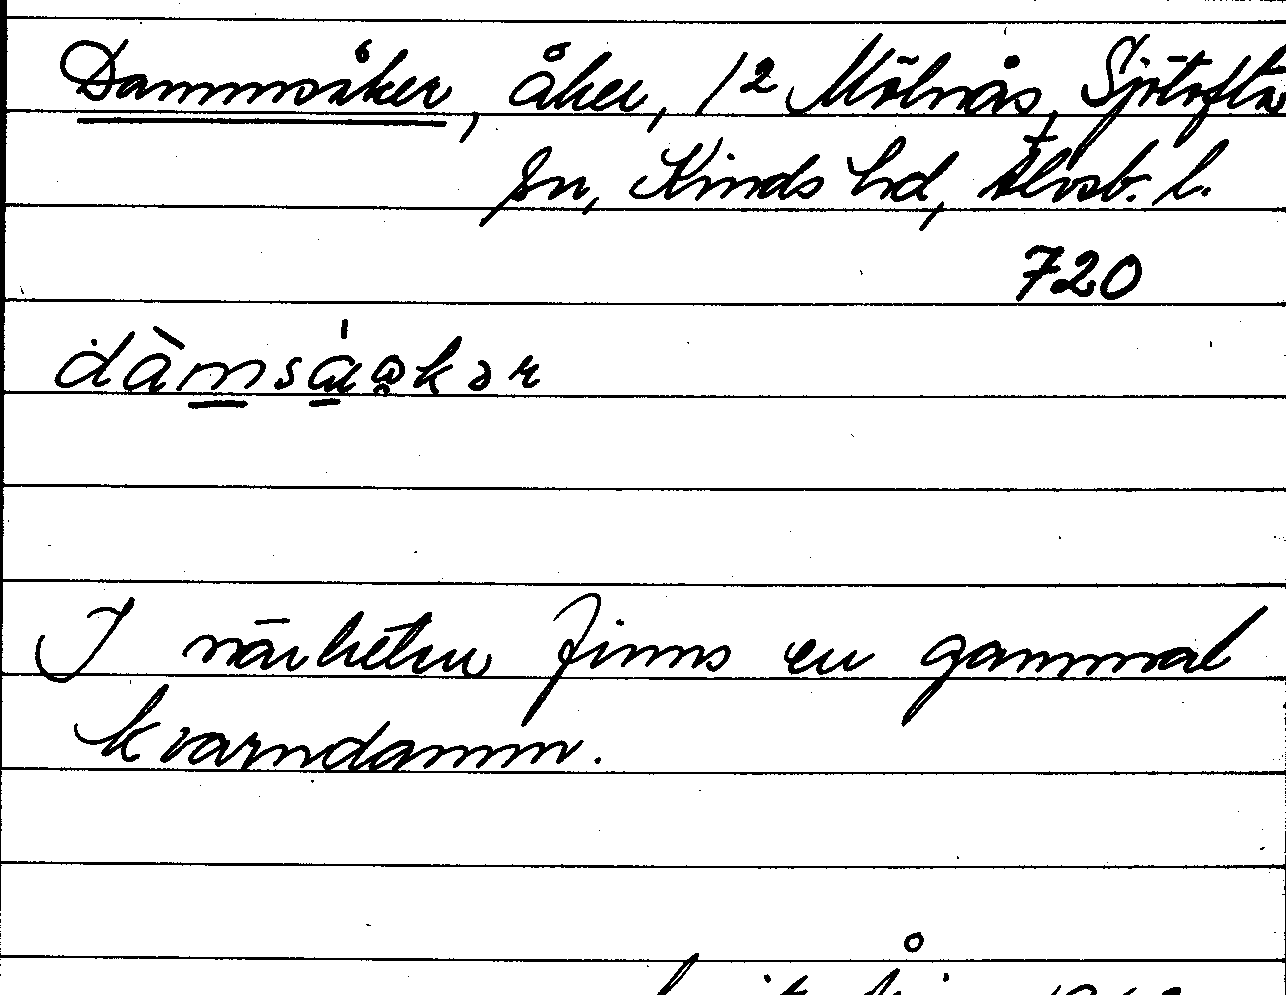 Dammsåker, åker, 1² Mölnås, Sjötofta
sn, Kinds hd, Älvsb. l.
720
dàmsáåkər
I närheten finns en gammal
kvarndamm.